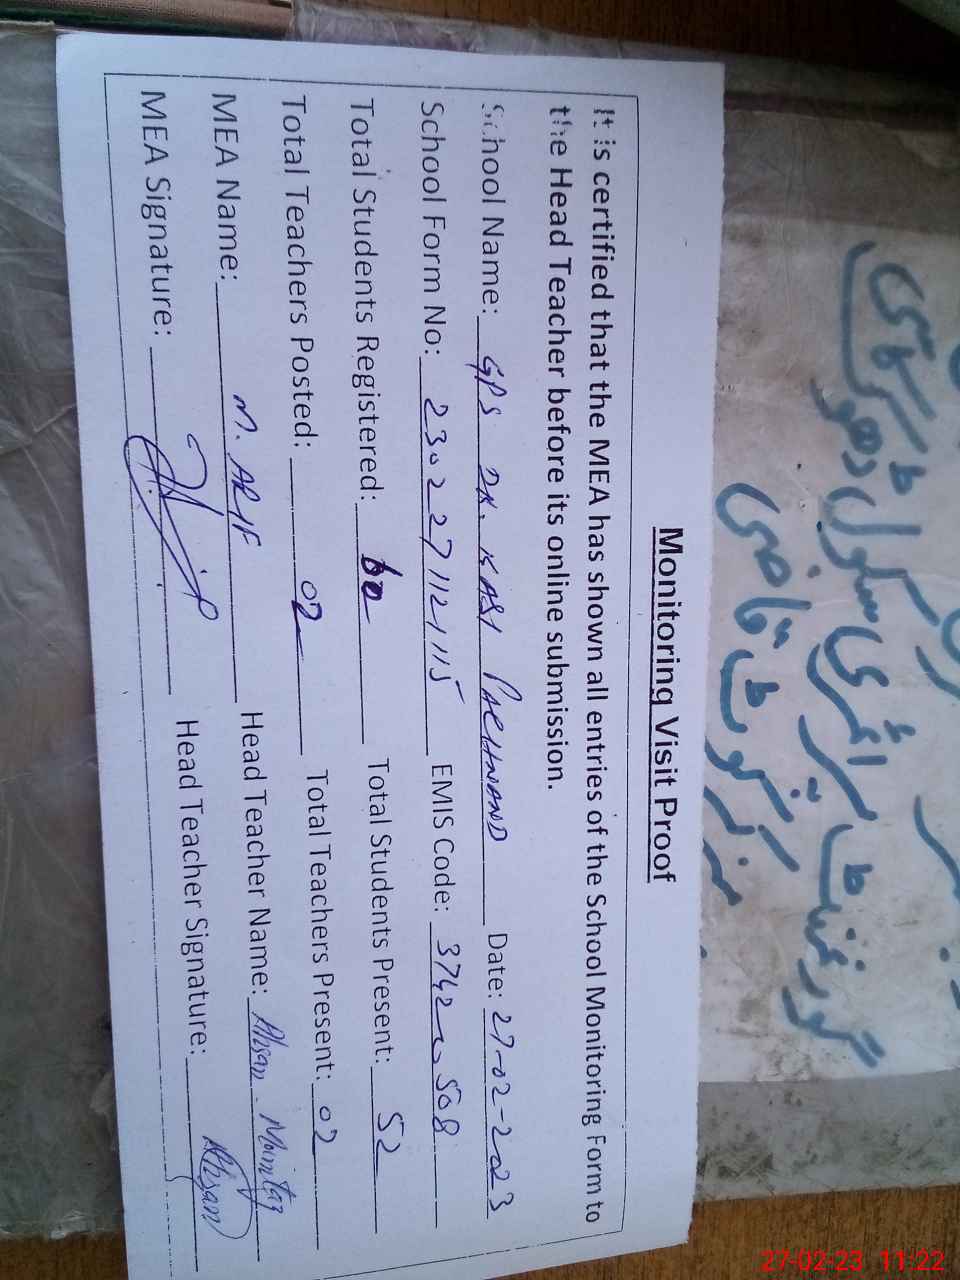 Monitoring Visit Proof
It is certified that the MEA has shown all entries of the School Monitoring Form to
the Head Teacher before its online submission.
School Name: GPS DK. KASI PACHNAND Date: 27-02-2023
School Form No: 2302271121115 EMIS Code: 37420508
Total Students Registered: 60 Total Students Present: 52
Total Teachers Posted: 02 Total Teachers Present: 02
MEA Name: M. ARIF Head Teacher Name: Ahsan Mumtaz
MEA Signature: Head Teacher Signature: Ahsan
گورنمنٹ پرائمری سکول ڈھوک
قاضی
27-02-23 11:22